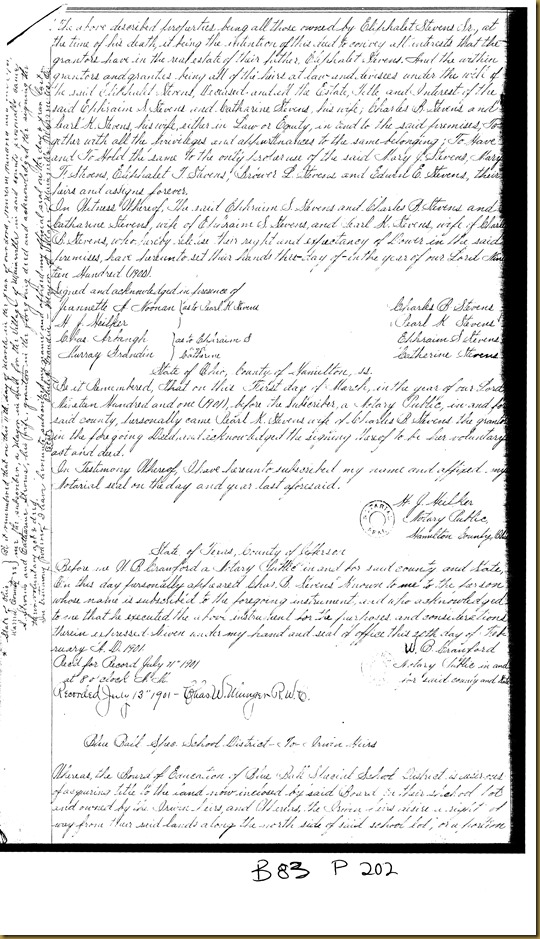 The above described properties being all those owned by Eliphalet Stevens Sr, at
the time of his death, it being the intention of this deed to convey all interests that the
grantors have in the real estate of their father, Eliphalet Stevens. And the within
grantors and grantees being all of the heirs at law and devisees under the will of
the said Eliphalet Stevens, Deceased and all the Estate, Title and Interest of the
said Ephraim S. Stevens and Catharine Stevens, his wife; Charles B. Stevens and
Pearl K. Stevens, his wife, either in Law or Equity, in and to the said premises, To
gether with all the privileges and appurtenances to the same belonging; To Have
and To Hold the same to the only proper use of the said Mary J. Stevens, Mary
F. Stevens, Eliphalet F. Stevens, Brower P. Stevens and Edwin E. Stevens, their
heirs and assigns forever.
In Witness Whereof, The said Ephraim S. Stevens and Charles B. Stevens and
Catharine Stevens, wife of Ephraim S. Stevens, and Pearl K. Stevens, wife of Charles
B. Stevens, who hereby release their right and expectancy of Dower in the said
premises, have hereunto set their hands this day of in the year of our Lord Nine
teen Hundred (1900).
Signed and acknowledged in presence of
Jeannette A. Noonan } as to Pearl K Stevens Charles B. Stevens
H. J. Heilker } Pearl K. Stevens
Chas Arbaugh } as to Ephraim S Ephraim S. Stevens
Murray Grandin } Catherine Stevens
State of Ohio, County of Hamilton, ss.
Be it Remembered, That on this First day of March, in the year of our Lord
Nineteen Hundred and one (1901), before the Subscriber, a Notary Public, in and for
said county, personally came Pearl K. Stevens wife of Charles B. Stevens the grantor
in the foregoing Deed and acknowledged the signing thereof to be her voluntary
act and deed.
In Testimony Whereof, I have hereunto subscribed my name and affixed my
Notarial seal on the day and year last aforesaid.
H. J. Heilker
Notary Public,
Hamilton County, Ohio
State of Texas, County of Jefferson
Before me W. B. Crawford a Notary Public in and for said county and state,
On this day personally appeared Chas. B. Stevens known to me to the person
whose name is subscribed to the foregoing instrument, and who acknowledged
to me that he executed the above instrument for the purposes and considerations
therein expressed. Given under my hand and seal of office this 20th day of Feb
ruary A.D. 1901
W. B. Crawford
Rec'd for Record July 11" 1901 Notary Public in and
at 8 o'clock A.M. for said county and State
Recorded July 13" 1901 - Chas W. Munger R.W.C.
Blue Ball Spec. School District - To - Irwin Heirs
Whereas, the Board of Education of Blue Ball Special School District is desirous
of acquiring title to the land now inclosed by said Board in their school lot
and owned by the Irwin heirs, and Whereas, the Irwin heirs desire a right of
way from their said lands along the north side of said school lot, or a portion
B83 P 202